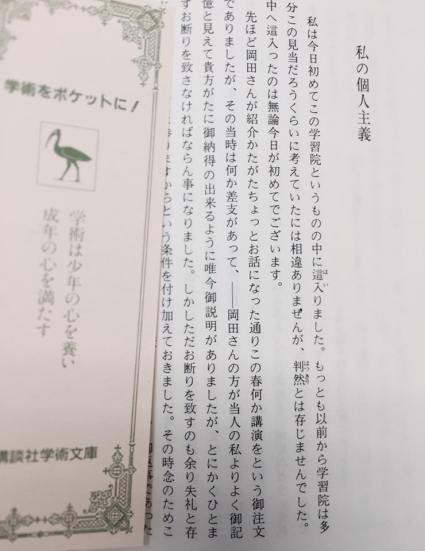 私の個人主義
私は今日初めてこの学習院というものの中に這入りました。もっとも以前から学習院は多
分この見当だろうくらいに考えていたには相違ありませんが、判然とは存じませんでした。
中へ這入ったのは無論今日が初めてでございます。
先ほど岡田さんが紹介かたがたちょっとお話になった通りこの春何か講演をという御注文
でありましたが、その当時は何か差支があって、――岡田さんの方が当人の私よりよく御記
憶と見えて貴方がたに御納得の出来るように唯今御説明がありましたが、とにかくひとま
ずお断りを致さなければならん事になりました。しかしただお断りを致すのも余り失礼と存
参りますからという条件を付け加えておきました。その時念のためこ
学術をポケットに!
学術は少年の心を養い
成年の心を満たす
講談社学術文庫